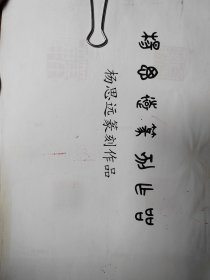 楊思遠篆刻作品
杨思远篆刻作品